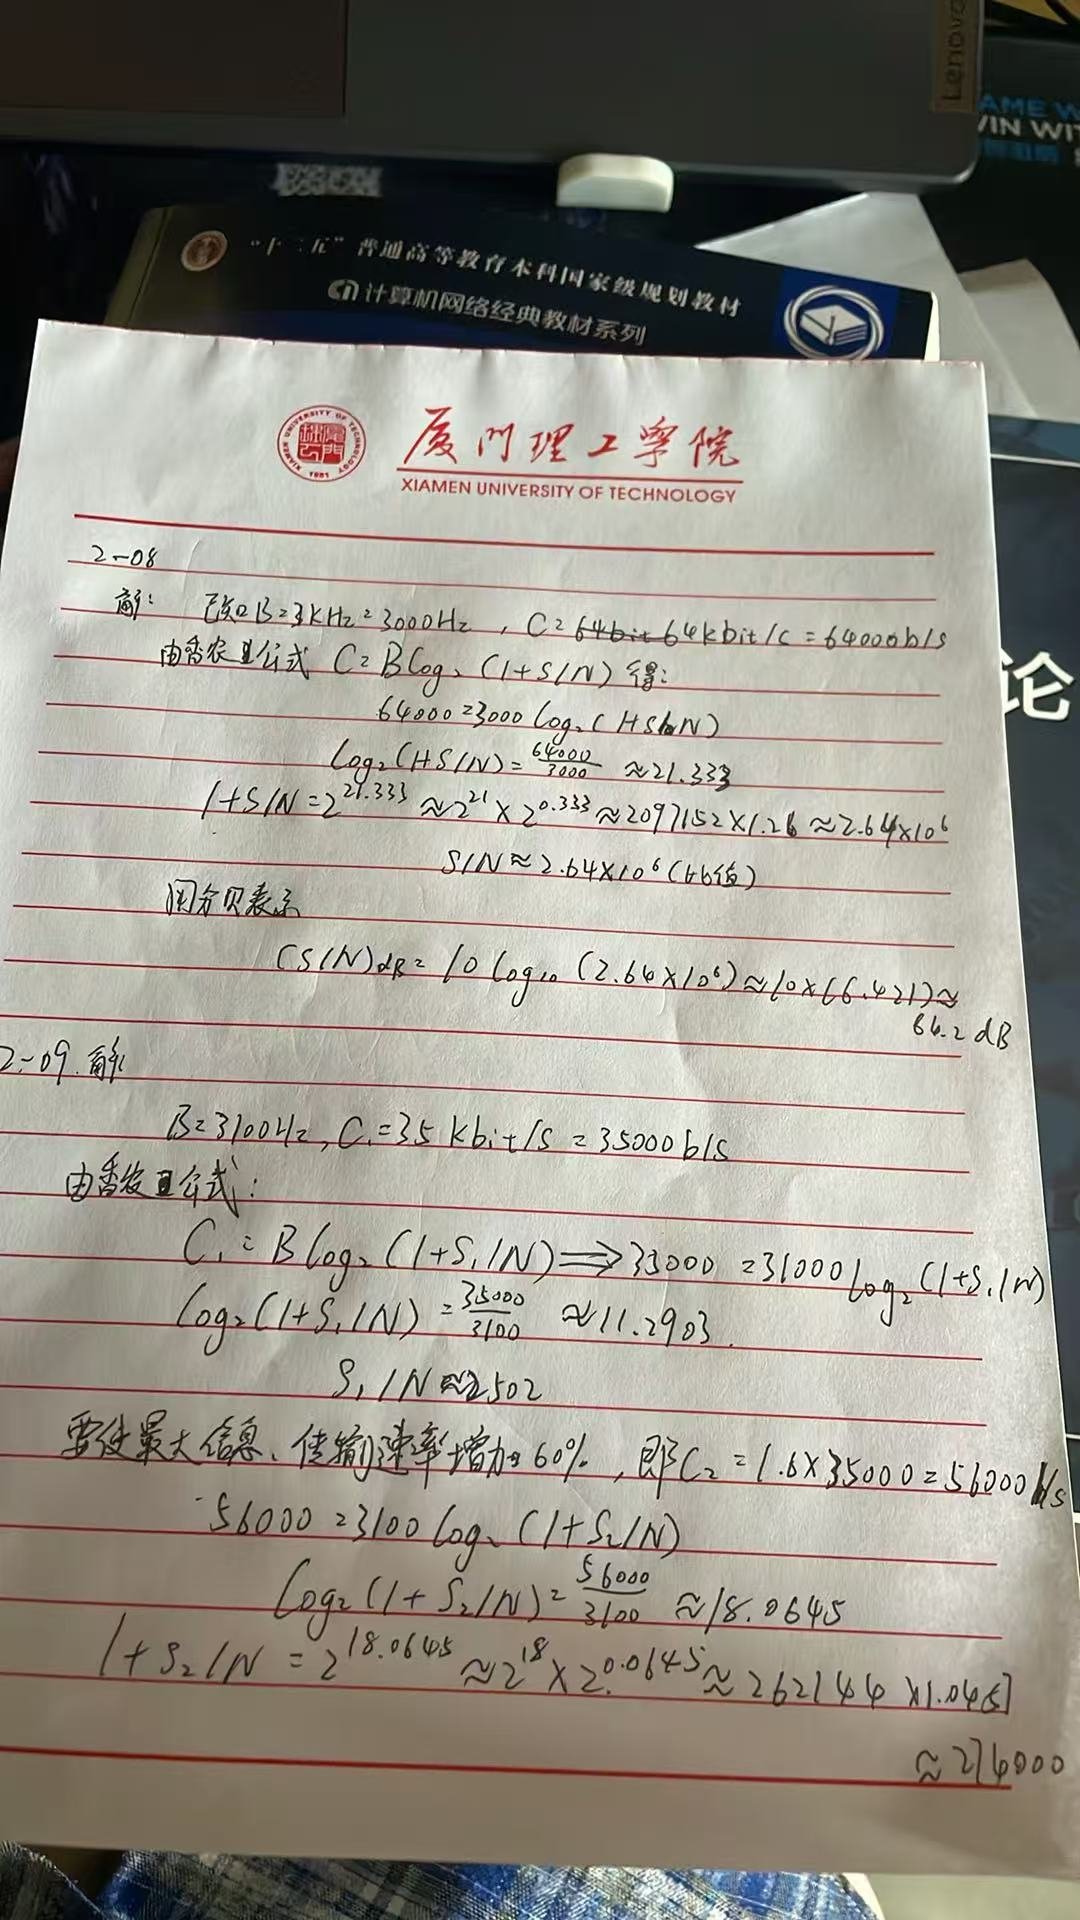 Lenovo
AME W
VIN WIT
"十二五"普通高等教育本科国家级规划教材
计算机网络经典教材系列
XIAMEN UNIVERSITY OF TECHNOLOGY
1981
厦门理工学院
XIAMEN UNIVERSITY OF TECHNOLOGY
论
2-08
解: 已知B=3KHz=3000Hz, C=64bit 64kbit/c=64000b/s
由香农公式 C=Blog₂(1+S/N)得:
64000=3000log₂(1+S/N)
log₂(1+S/N)=64000/3000≈21.333
1+S/N=2^21.333≈2^21×2^0.333≈2097152×1.26≈2.64×10^6
S/N≈2.64×10^6(比值)
用分贝表示
(S/N)dB=10log₁₀(2.64×10^6)≈10×(6.421)≈
64.2dB
2-09.解:
B=3100Hz,C₁=35kbit/s=35000b/s
由香农公式:
C₁=Blog₂(1+S₁/N)⟹35000=31000log₂(1+S₁/N)
log₂(1+S₁/N)=35000/3100≈11.2903.
S₁/N≈2502
要使最大信息、传输速率增加60%,即C₂=1.6×35000=56000b/s
56000=3100log₂(1+S₂/N)
log₂(1+S₂/N)=56000/3100≈18.0645
1+S₂/N=2^18.0645≈2^18×2^0.0645≈262144×1.0457
≈274000